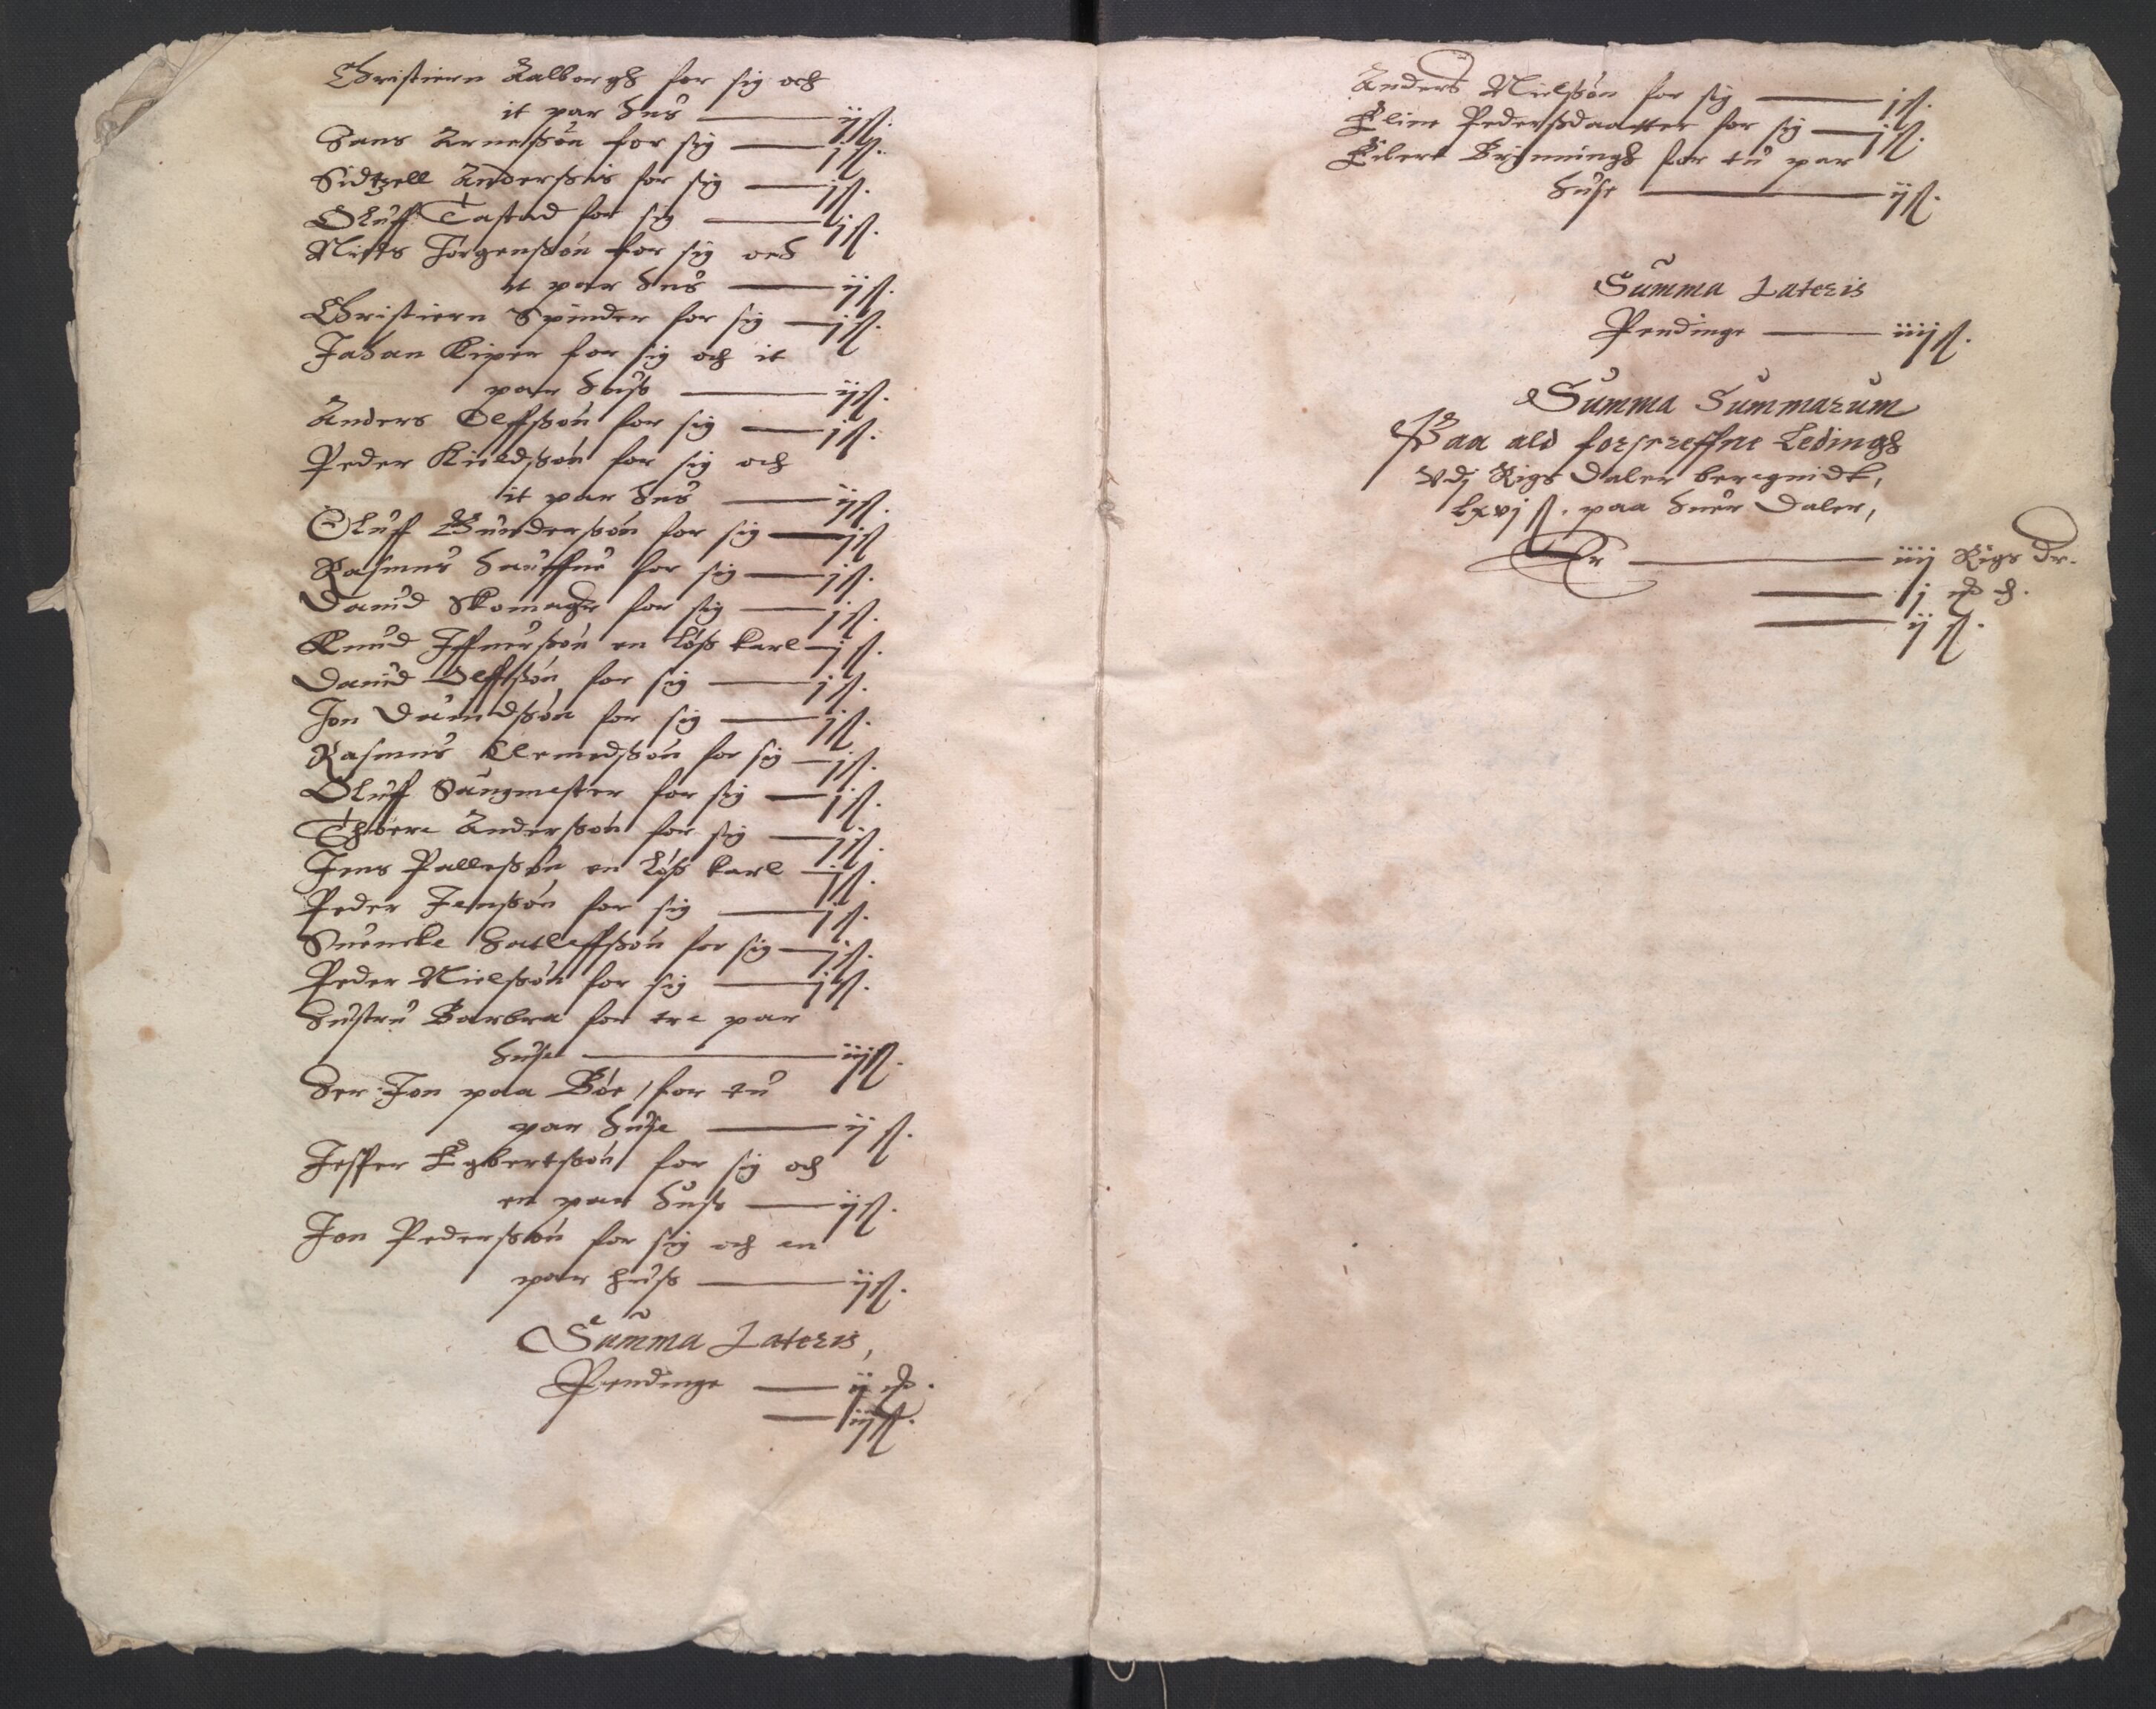 Christiern Aalborgh for sig och
it par hus ij ß.
Hans Arnesßøn for sig j ß.
Sidtzell Anderssis for sig j ß.
Oluff Tastad for sig j ß.
Niels Jørgenßøn for sig och
it par hus ij ß.
Christiern Spinder for sig j ß.
Johan Kiper for sig och it
par huß ij ß.
Anders Olffßøn for sig j ß.
Peder Kieldßøn for sig och
it par hus ij ß.
Oluff Gunderßøn for sig j ß
Rasmus for sig j ß.
Dauid Skomager for sig j ß.
Knud Iffuerßøn en løß karl j ß.
Dauid Olffßøn for sig j ß.
Jon Dauidßøn for sig j ß.
Rasmus Clemedßøn for sig j ß.
Oluff Sangmester for sig j ß.
Thore Anderßøn for sig j ß.
Jens Palleßøn en løß karl j ß.
Peder Jenßøn for sig j ß.
Suencke Gatleffßøn for sig j ß.
Peder Nielßøn for sig j ß.
Hustru Barbra for tre par
huse iij ß.
Her Jon paa Bøe, for tu
par huse ij ß.
Jesper Egbertßøn for sig och
en par huß ij ß.
Jon Pederßøn for sig och en
par huß ij ß.
Summa Lateris,
Pendinge ij mk.
iij ß.
Anders Nielßøn for sig j ß.
Eline Pederßdaatter for sig j ß.
Eilert Brynningh for tu par
huse ij ß.
Summa Lateris
Pendinge iiij ß.
Summa Summarum
Paa ald forscreffne Ledingh
vdj Rigs Daler beregnidt,
lxvj ß. paa huer Daler,
Er iiij Rigs Dr.
j mk.
ij ß.